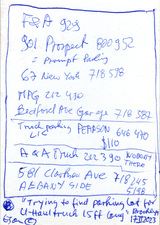 F&A 929
901 Prospect 800 952
= Prompt Parking
67 New York 718 578
MPG 212 410
Bedford Ave Garage 718 587
Truck parking PEARSON 646 470
LIC $110
A & A Truck 212 390 NOBODY THERE
581 Classon Ave 718 245
ALBANY SIDE 5198
"Trying to find parking lot for
U-Haul truck 15ft long"
Brooklyn